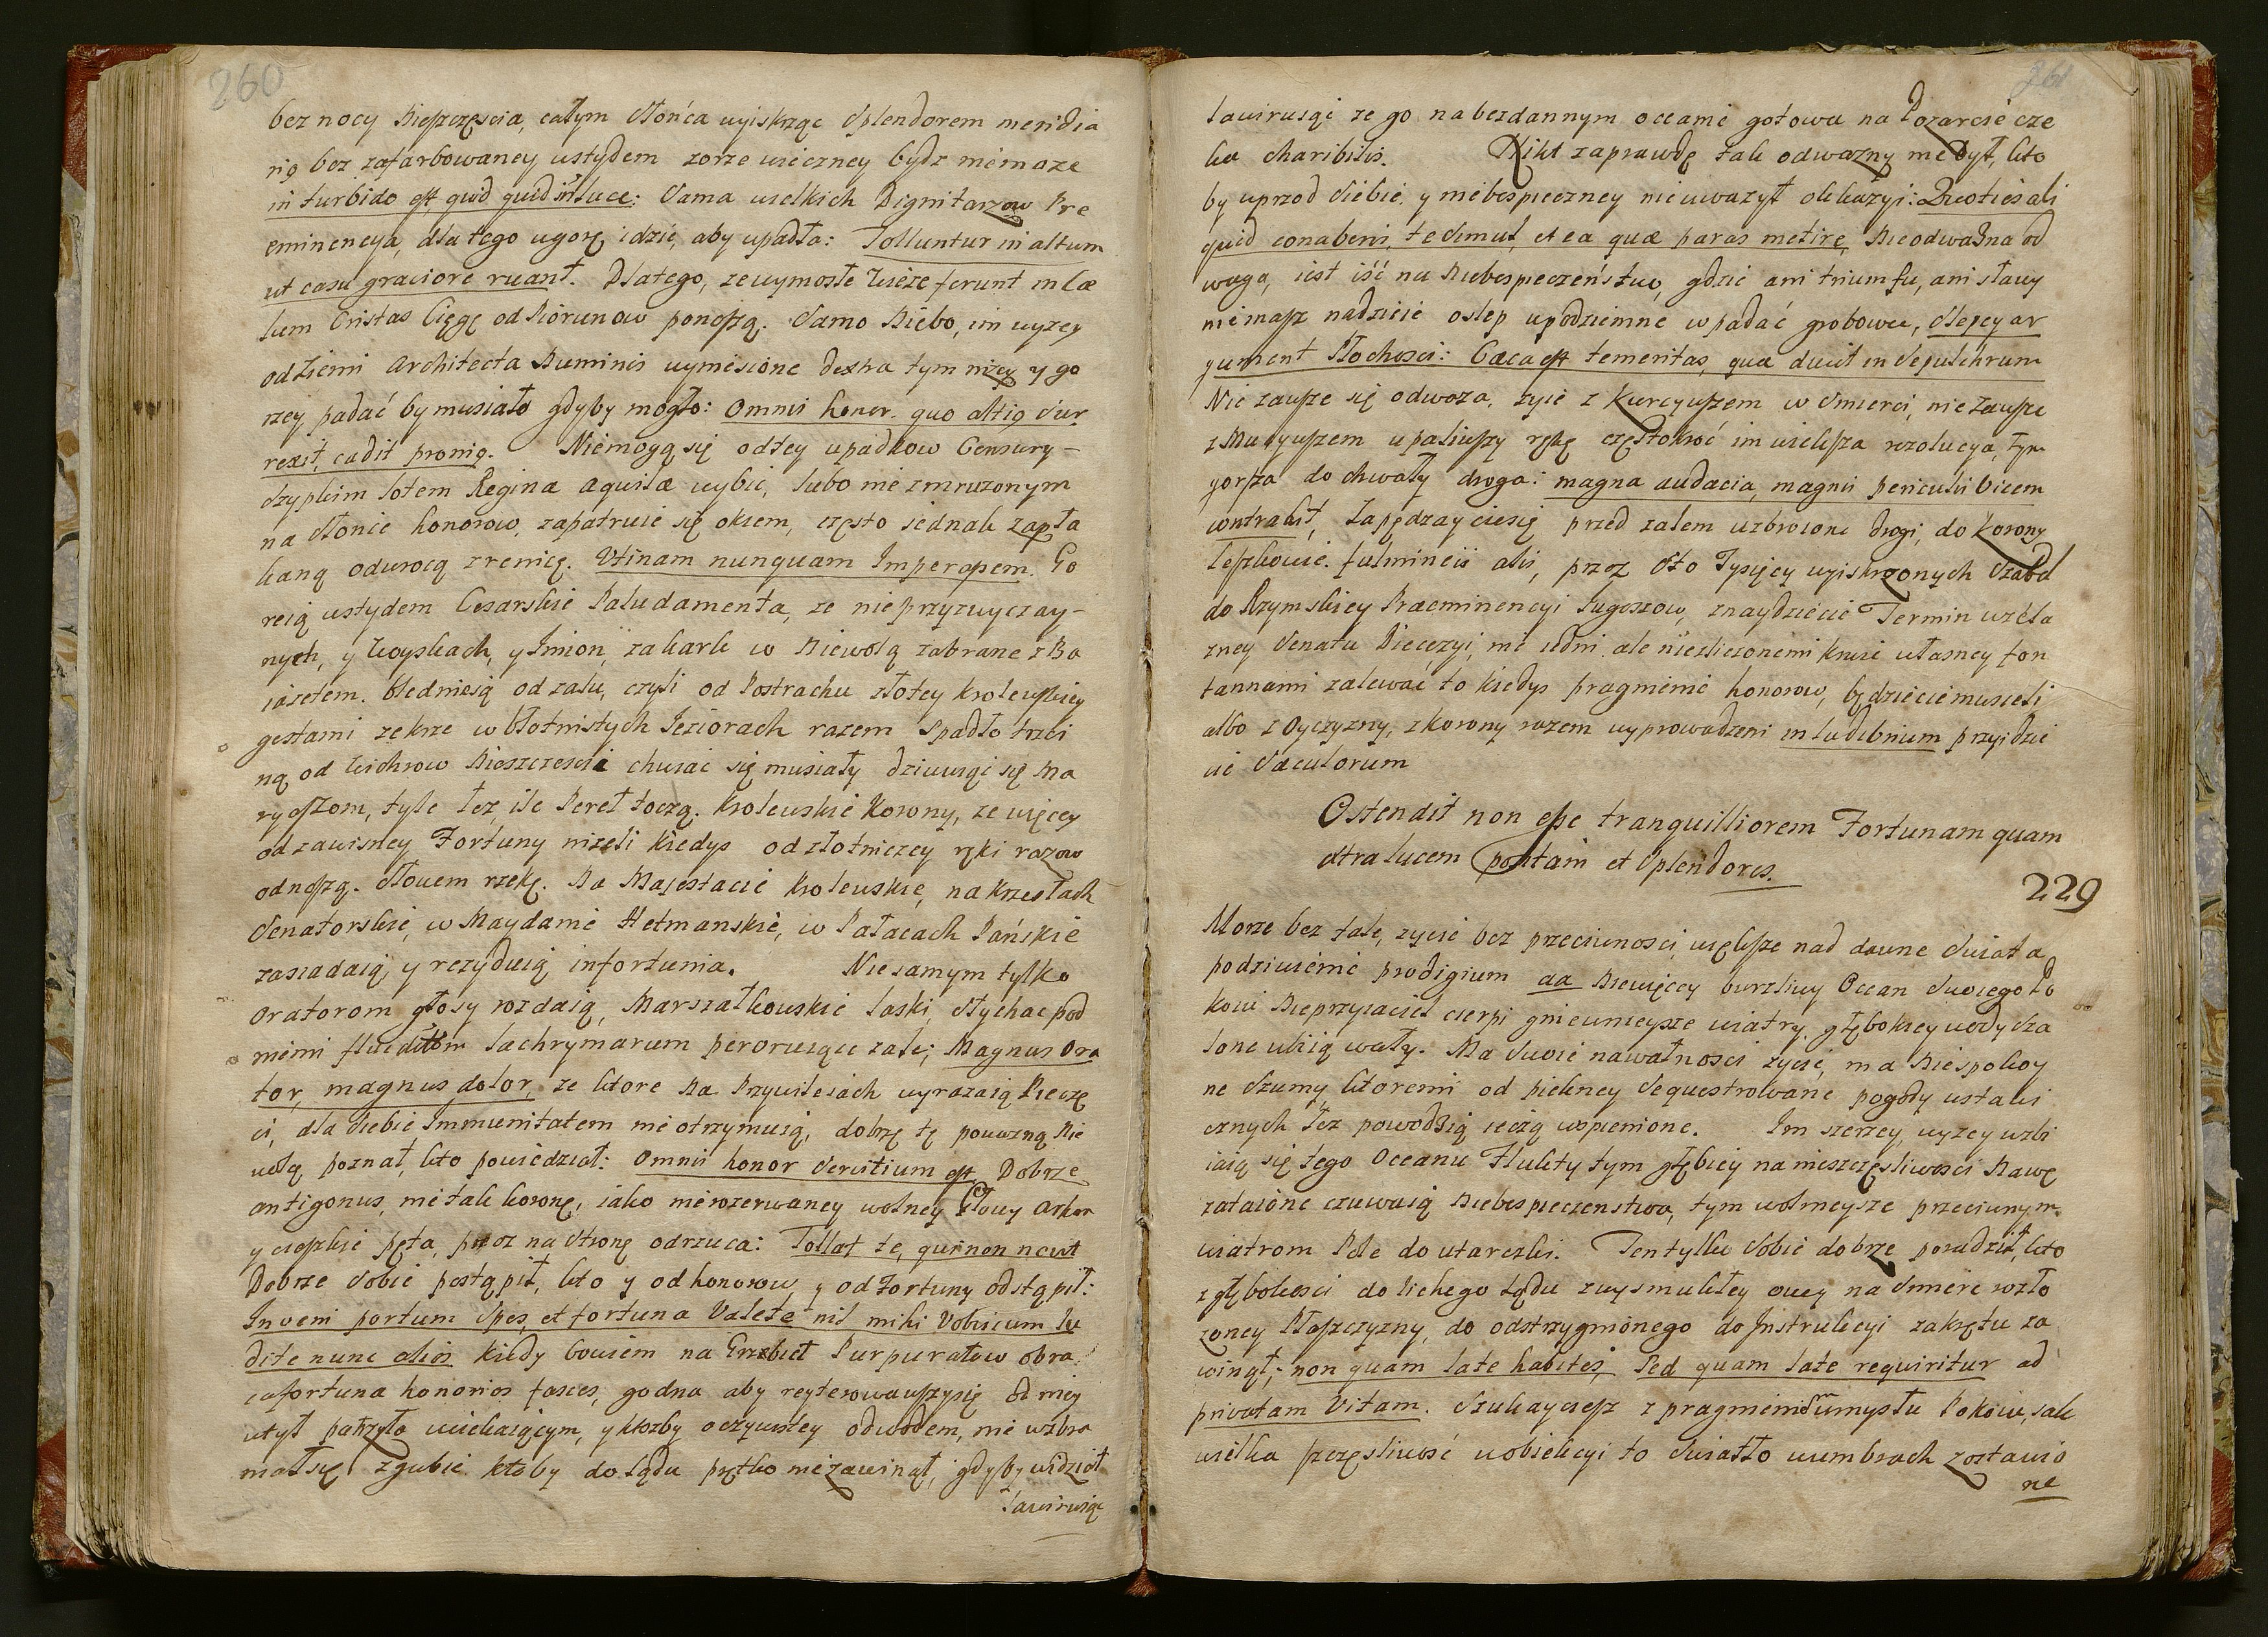 260
bez nocy Nieszczęscia, całym słońca wyiskrzyc Splendorem meridia
nẏ bez zafarbowaney wstydem zorze wieczney bydz niemoze
in turbido est, quid quid in luce: Sama wielkich Dignitarzow Pre
eminencya, dla tego ugorę idzie, aby upadła: Tolluntur in altum
ut casu graviore ruant. Dlatego, ze wyniosłe Wieze ferunt in Cæ
lum Cristas Cięgę od Piorunow ponoszą. Samo Niebo, im wyzey
od Ziemi Architecta Numinis wyniesione dextra tym nizey y go
rzey padać by musiało gdyby mogło: Omnis honor quo altiq Sur
rexit, cadit proniq. Niemogą się odtey upadkow Censury-
Szypkim lotem Regina aquila wybic, lubo nie zmruzonym
na słonce honorow, zapatruie się okiem, często iednak zapła
kaną odwrocą zrenicę. Utinam nunquam Imperassem. Go
reią wstydem Cesarskie Paludamenta, ze nieprzyzwyczay-
nych, y Woyskach, y Imion, za kark w Niewolą zabrane z Ba
iazetem. Bledneią od zalu, czyli od Postrachu złotey krolewskiey
gestami ze krze w błotnistych Jeziorach razem Spadło trzci
ną od Wichrow Nieszczescia chwiac się musiały dziwuiąc się Ma
ryuszom, tyle łez, ile Pereł toczą. Krolewskie Korony, ze więcey
od zawisney Fortuny nizeli kiedys od złotniczey ręki razow
odnoszą. Słowem rzekę. Na Majestacie krolewskie, na krzesłach
Senatorskie, w Maydanie Hetmanskie, w Pałacach Pańskie
zasiadaią, y rezyduią infortunia. Nie samym tylko
Oratorom głosy rozdaią, Marszałkowskie laski, słychac pod
niemi lachrymarum peroruiące zale; Magnus Ora
tor, magnus dolor, ze ktore Na Przywileiach wyrazaią Pieczę
ci, dla siebie Immunitatem nie otrzymuią, dobrze tę powazną Nie
wolą poznał, kto powiedział: Omnis honor Servitium est. Dobrze
antigonus, nie tak koronę, iako nierozerwaney wolney Głowy
y cięszkie pęta, precz na stronę odrzuca: Tollat te, qui non novit
Dobrze Sobie postąpił, kto y od honorow y od Fortuny odstąpił:
Inveni portum Spes, et fortuna Valete nil mihi Vobiscum lu
dite nunc alios kiedy bowiem na Grzbiet Purpuratow obra
ca fortuna honorios fasces, godna aby reyterowawszysię od niey
w tył patrzyła uciekaiącym, y ktozby oczywistey odwodem, nie wzbra
niałsię zgubie ktoby do Lądu prętko niezawinął, gdyby widział
Lawiruiąc
261
lawiruiąc ze go na bezdannym oceanie gotowa na Pozarcie cze
ka charibdis. Nikt zaprawdę tak odwazny niebył, kto
by uprzod siebie y niebespieczney nie uwazył okkazyi: Quoties ali
quid conaberis, te Simul, et ea quæ paras metire, Nieodwazna od
waga, iest iść na Niebespieczeństwo, gdzie ani triumfu, ani sławy
niemasz nadzieie oslep w podziemne wpadać grobowce, slepey ar
gument Płochosci: Cæca est temeritas, qua ducit in Sepulchrum
Nie zawsze się odwaza, zyie z Kurcyuszem w Smierci, nie Zawsze
z Mucyuszem upaliwszy rękę częstokroć im wielksza rezolucya, tym
gorsza do chwały droga: magna audacia, magnis periculis Vicem
contrahit, Zapędzaycie się przed zalem uzbroione drogi, do Korony
Leszkowie. fulmineis alis, przez Sto Tysięcy wyiskrzonych Szabel
do Rzymskiey Præeminencyi Jugoszow, znaydziecie Termin w zela
zney Senatu Diecezyi, nie iedni, ale niezliczonemi krwie własney fon
tannami zalewać to kiedys pragnienie honorow, będziecie musieli
albo z Oyczyzny, z korony razem wyprowadzeni in ludibrium przyidzie
cie Sæculorum
Ostendit non esse tranquilliorem Fortunam quam
extra lucem positam et Splendores.
229
Morze bez fale, zycie bez przeciwnosci, większe nad dawne Swiata
podziwienie prodigium aa Niewięcey burzliwy Ocean Swoiego Po
koiu Nieprzyiaciel cierpi gniewnieysze wiatry, głębokiey wody Sza
lone wały. Ma Swoie nawałnosci zycie, ma Niespokoy
ne Szumy, ktoremi od piekney Sequestrowane pogody ustawi
cznych łez powodzią ieczą wspienione. Im szerzey, wyzey wzbi
iaią się tego Oceanu Flukty tym głębiey na nieszczęsliwosci Nawę
zataione czuwaią Niebespieczenstwa, tym wolnieysze przeciwnym
wiatrom Pole do utarczki. Ten tylko Sobie dobrze poradził, kto
z głębokosci do lichego Lądu z wysmukłey owey na Smierc rozło
zoney Płaszczyzny, do odstrzygnionego do Instrukcyi zakrętu za
winął; non quam late habites, Sed quam late requiritur ad
privatam Vitam. Szukayciesz z pragnieniem umysłu Pokoiu, iak
wielka szczęsliwość w obiekcyi to Swiatło w umbrach zostawio
ne